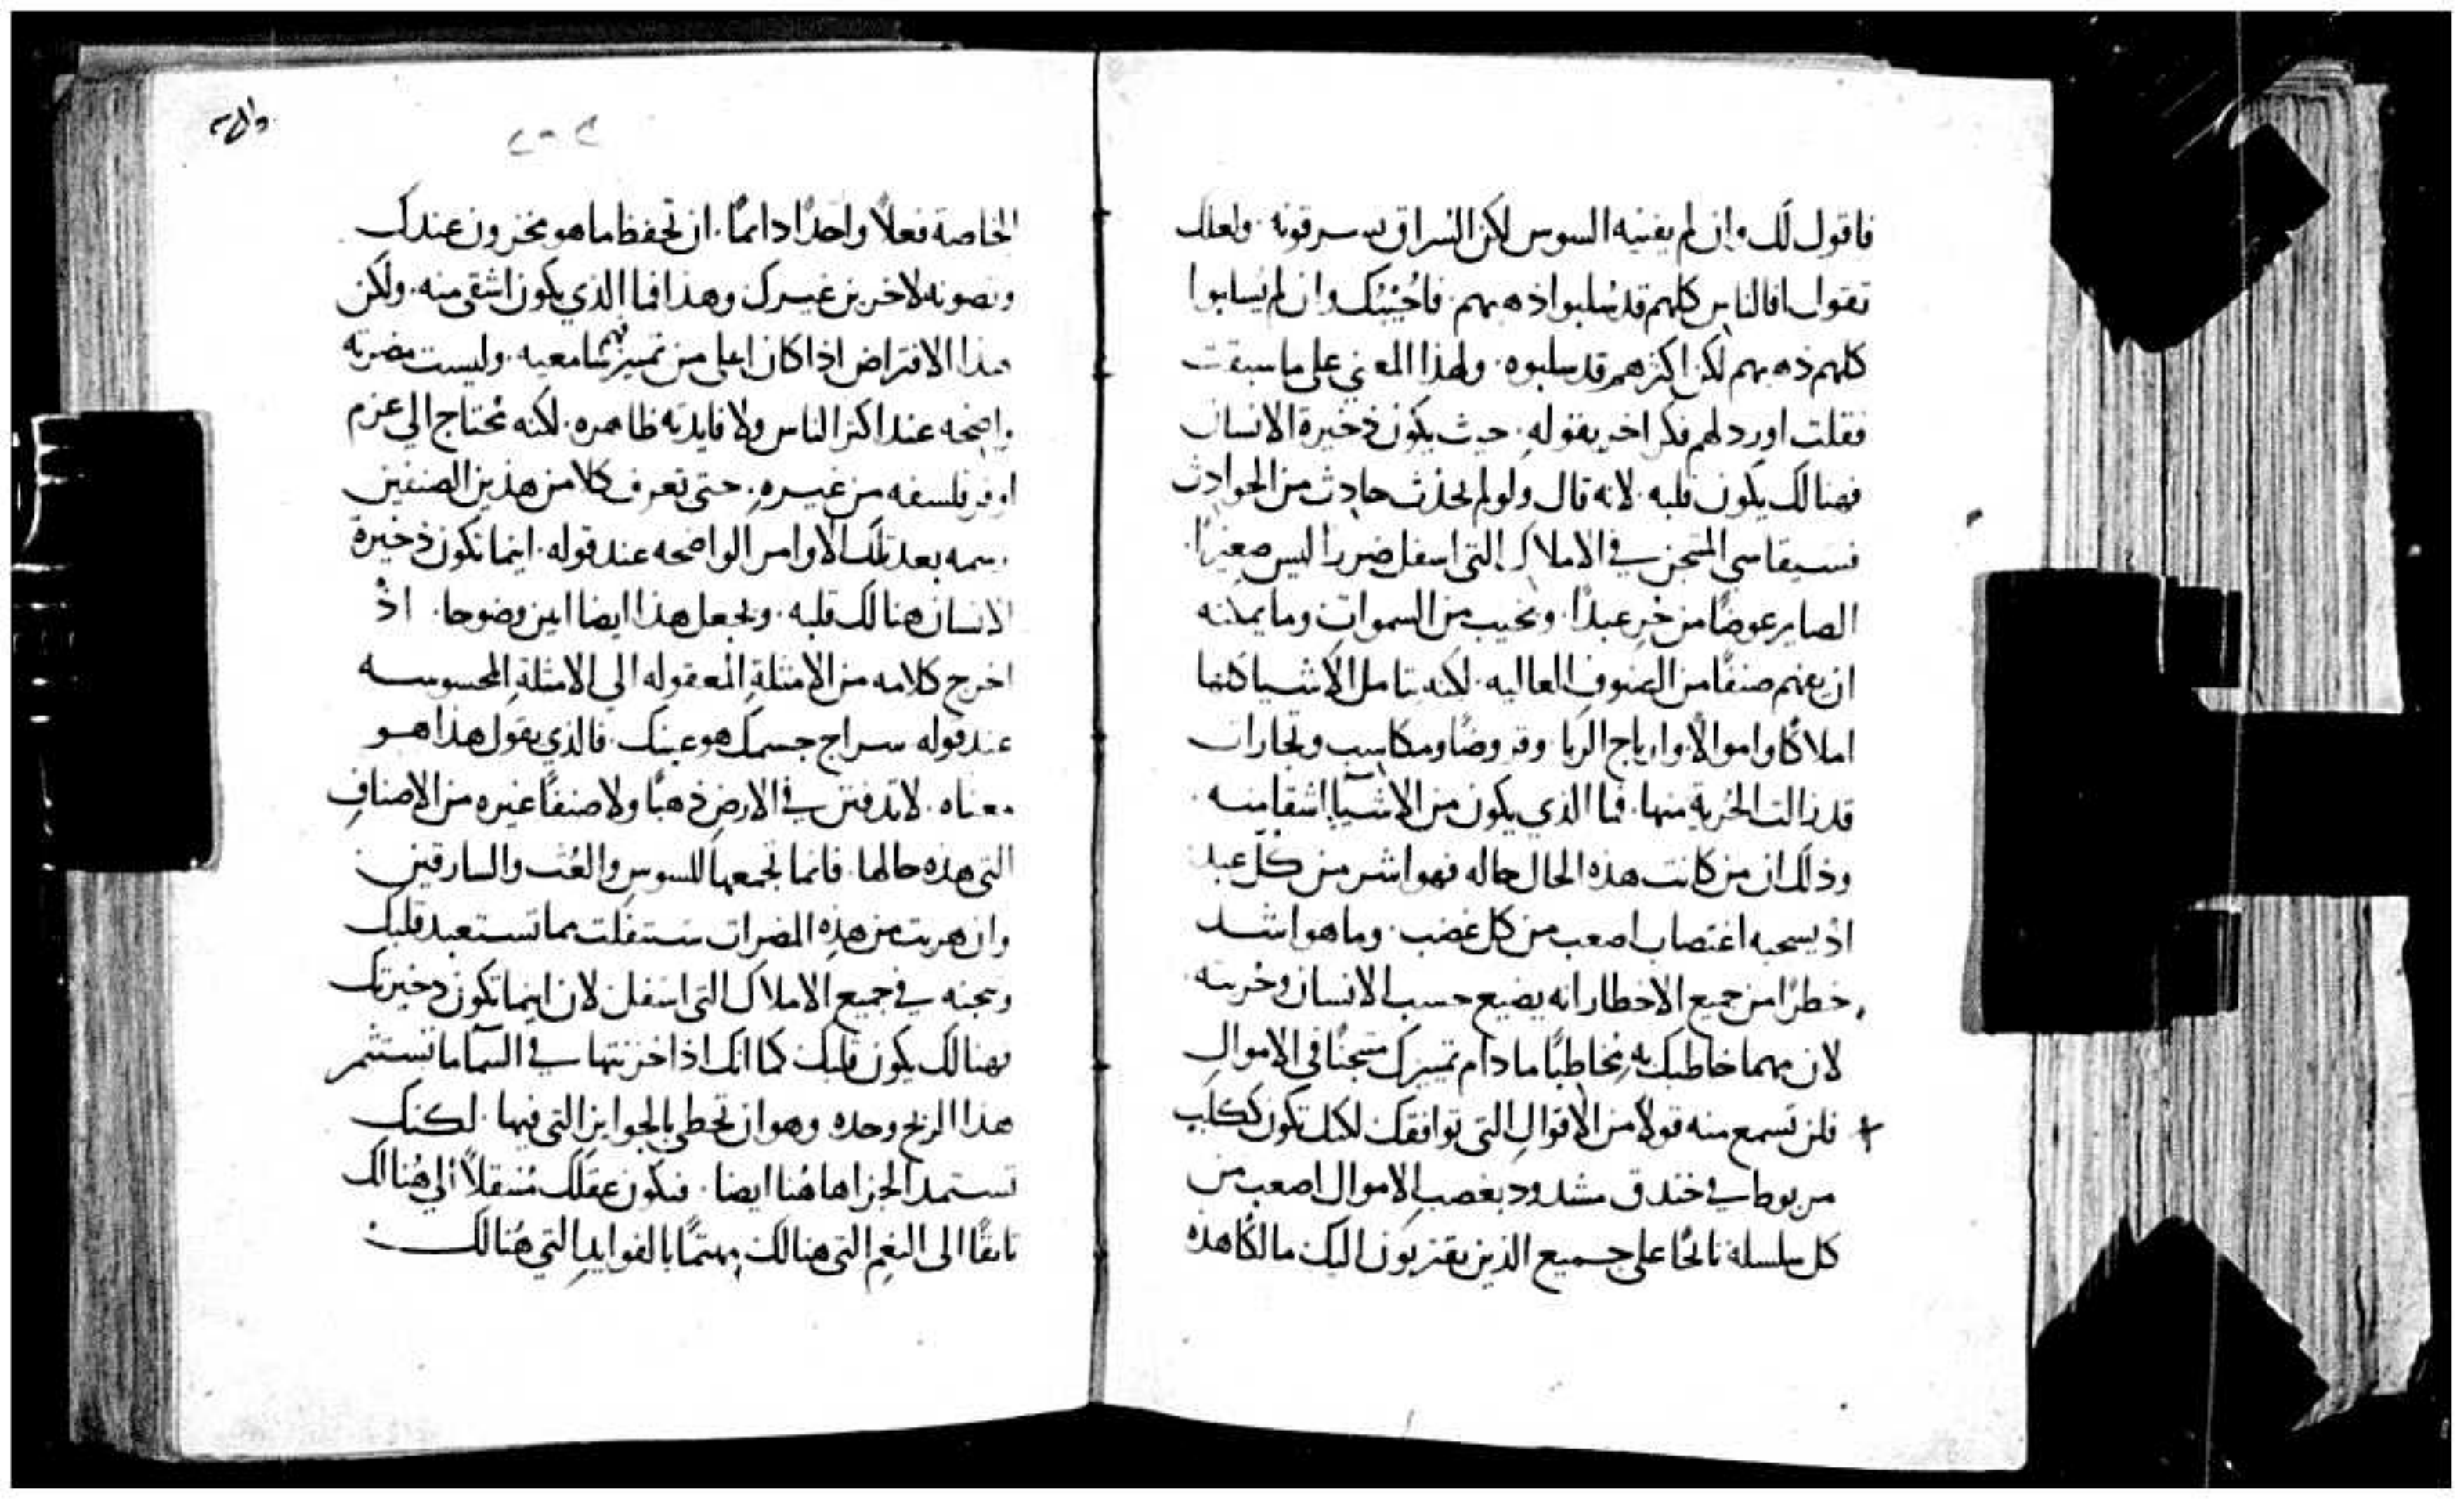 فاقول لك وان لم يفنيه السوس لكن السراق يسرقونه · ولعلك
تقول افالناس كلهم قد سلبوا ذهبهم · فاجيبك وان لم يسلبوا
كلهم ذهبهم لكن اكثرهم قد سلبوه · ولهذا المعني علي ما سبقت
فقلت اورد لهم فكرا اخر بقوله · حيث يكون ذخيرة الانسان
فهنالك يكون قلبه · لانه قال ولو لم يحدث حادث من الحوادث
فسيقاسي المسجن في الاملاك التي اسفل ضررا ليس صغيرا ·
الصاير عوضا من حر عبدا · ويخيب من السموات وما يمكنه
ان يفهم صنفا من الصنوف العاليه · لكنه يتامل الاشيا كلها
املاكا واموالا وارباح الربا · وقروضا ومكاسب وتجارات
قد زالت الحرية منها · فما الذي يكون من الاشيآ اشقا منه ·
وذلك ان من كانت هذه الحال حاله فهو اشر من كل عبد
اذ يسحبه اغتصاب اصعب من كل غضب · وما هو اشد
خطرا من جميع الاخطار انه يضيع حسب الانسان وحريته ·
لان مهما خاطبك به مخاطبا ما دام تمييزك مسجنا في الاموال
فلن تسمع منه قولا من الاقوال التي توافقك لكنك تكون ككلب
مربوط في خندق مشدود بغصب الاموال اصعب من
كل سلسلة نابحا علي جميع الذين يقتربون اليك مالكا هذه
الخاصة فعلا واحدا دايما · ان تحفظ ما هو مخزون عندك
وتصونه لاخرين غيرك وهذا فما الذي يكون اشقي منه · ولكن
هذا الافتراض اذا كان اعلي من تمييز سامعيه · وليست مضرته
واضحه عند اكثر الناس ولا فايدته ظاهره · لكنه يحتاج الي عزم
اوفر فلسفه من غيره · حتي تعرف كلا من هذين الصنفين
رسمه بعد تلك الاوامر الواضحه عند قوله · اينما تكون ذخيرة
الانسان هنالك قلبه · ويجعل هذا ايضا ابين وضوحا · اذ
اخرج كلامه من الامثلة المعقوله الي الامثلة المحسوسه
عند قوله سراج جسمك هو عينك · فالذي يقول هذا هو
معناه · لا تدفنن في الارض ذهبا ولا صنفا غيره من الاصناف
التي هذه حالها · فانما تجمعها للسوس والعث والسارقين
وان هربت من هذه المضرات ستفلت مما تستعبد قلبك
وتسجنه في جميع الاملاك التي اسفل لان اينما تكون ذخيرتك
فهنالك يكون قلبك كما انك اذا خزنتها في السمآ ما تستثمر
هذا الربح وحده وهو ان تحظي بالجوايز التي فيها · لكنك
تستمد الجزا هاهنا ايضا · فيكون عقلك منتقلا الي هنالك
تايقا الي النعم التي هنالك مهتما بالفوايد التي هنالك